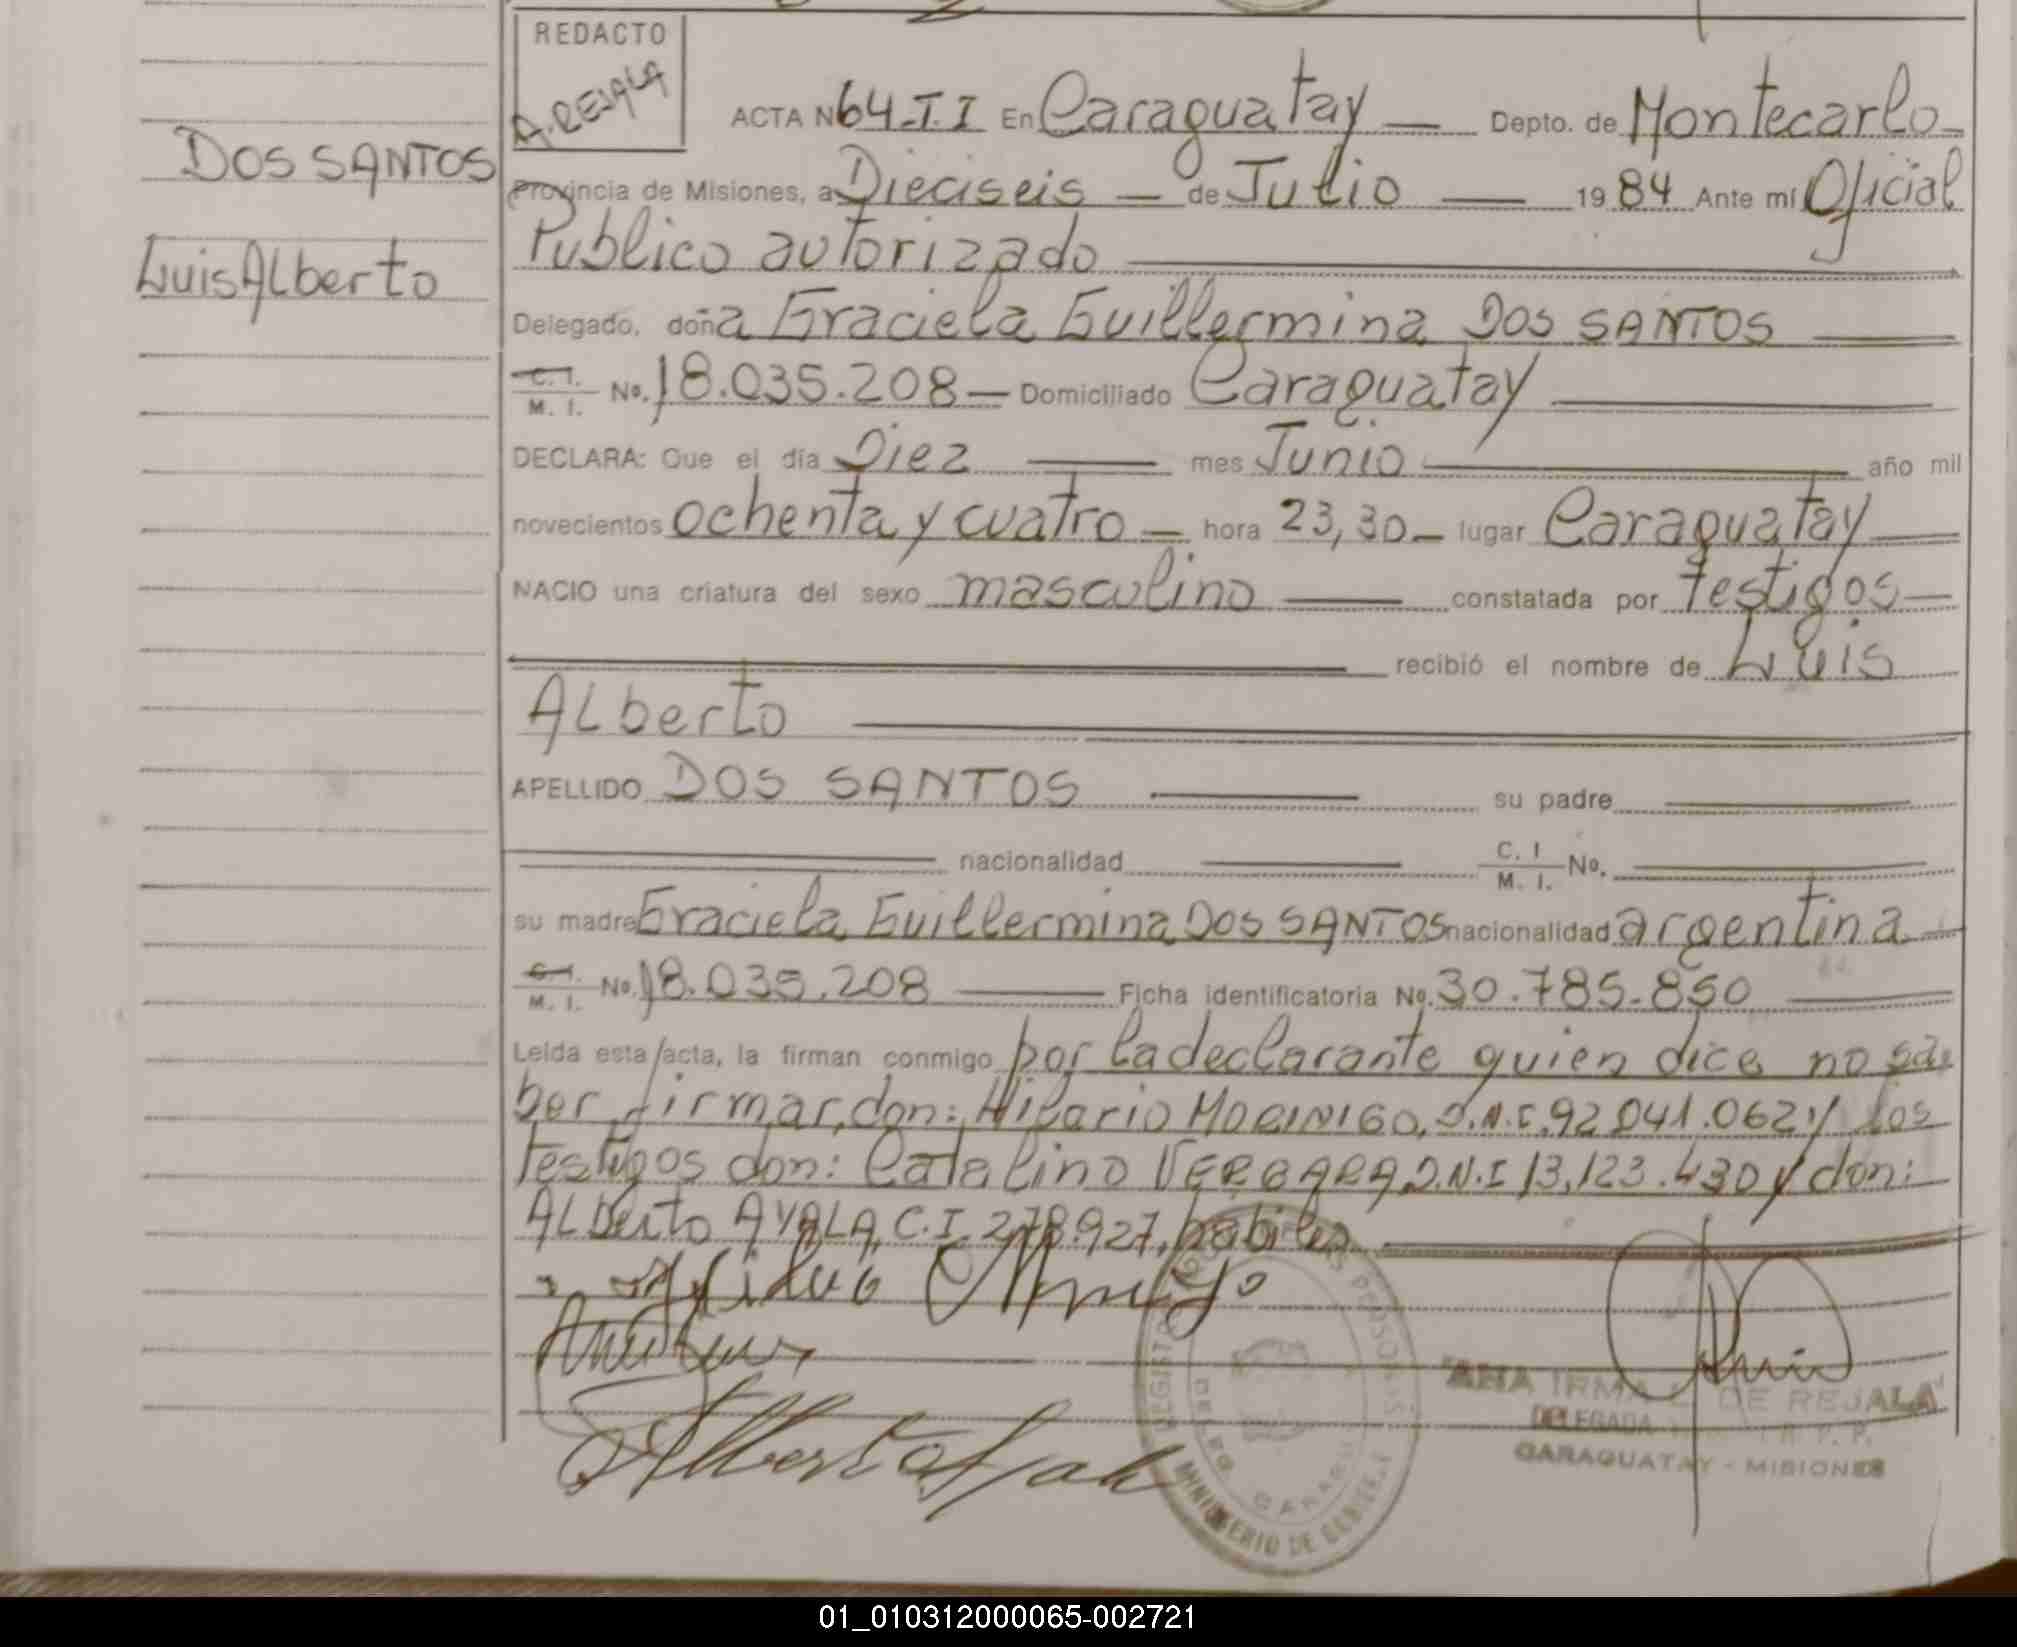 REDACTO
A. REJALA
ACTA Nº 64-T.I En Caraguatay — Depto. de Montecarlo
DOS SANTOS
Provincia de Misiones, a Dieciseis — de Julio — 1984 Ante mí Oficial
Publico autorizado
Luis ALberto
Delegado, doña Graciela Guillermina DOS SANTOS
C. I. / M. I. No. 18.035.208 — Domiciliado Caraguatay
DECLARA: Que el día Diez — mes Junio — año mil
novecientos ochenta y cuatro — hora 23,30 — lugar Caraguatay
NACIO una criatura del sexo masculino — constatada por testigos —
recibió el nombre de Luis
ALberto
APELLIDO DOS SANTOS — su padre —
nacionalidad — C. I / M. I. No. —
su madre Graciela Guillermina DOS SANTOS nacionalidad argentina
C. I. / M. I. No. 18.035.208 — Ficha identificatoria No. 30.785.850 —
Leída esta acta, la firman conmigo por la declarante quien dice no sa
ber firmar, don: Hilario MORINIGO, D.N.I. 92.041.062 y los
testigos don: Catalino VERGARA D.N.I 13.123.430 y don:
ALberto AYALA, C.I. 278.927, habiles
Alberto Ayala
ANA IRMA L. DE REJALA
DELEGADA
CARAGUATAY - MISIONES
MINISTERIO DE GOBIER
01_010312000065-002721